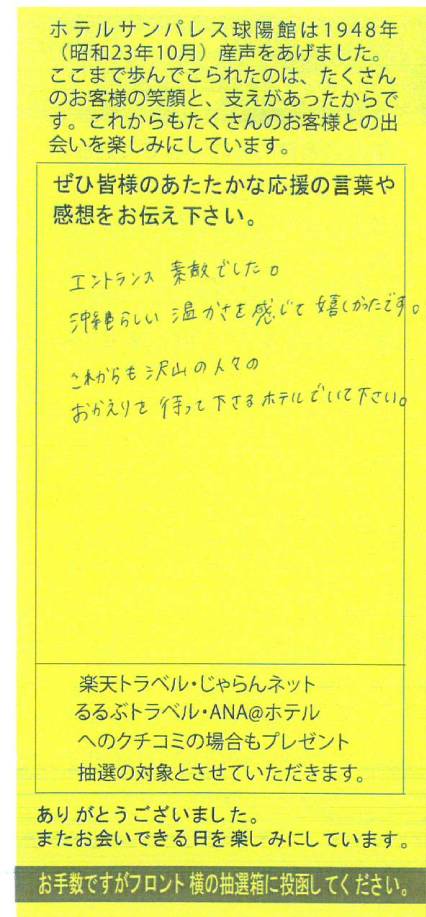 ホテルサンパレス球陽館は1948年
（昭和23年10月）産声をあげました。
ここまで歩んでこられたのは、たくさん
のお客様の笑顔と、支えがあったからで
す。これからもたくさんのお客様との出
会いを楽しみにしています。
ぜひ皆様のあたたかな応援の言葉や
感想をお伝え下さい。
エントランス 素敵でした。
沖縄らしい 温かさを感じて 嬉しかったです。
これからも 沢山の人々の
おかえりを 待って下さるホテルでいて下さい。
楽天トラベル・じゃらんネット
るるぶトラベル・ANA@ホテル
へのクチコミの場合もプレゼント
抽選の対象とさせていただきます。
ありがとうございました。
またお会いできる日を楽しみにしています。
お手数ですがフロント横の抽選箱に投函してください。